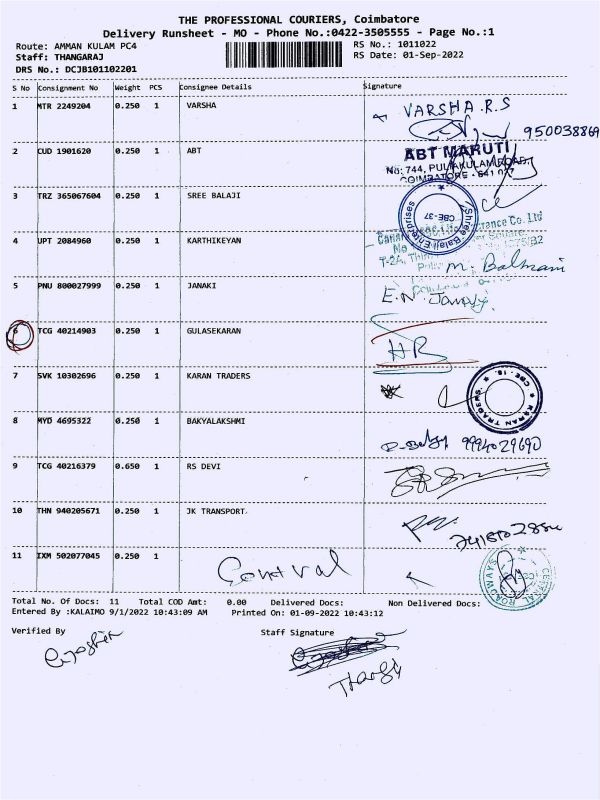 THE PROFESSIONAL COURIERS, Coimbatore
Delivery Runsheet - MO - Phone No.:0422-3505555 - Page No.:1
Route: AMMAN KULAM PC4
RS No.: 1011022
Staff: THANGARAJ
RS Date: 01-Sep-2022
DRS No.: DCJB101102201
S No Consignment No Weight PCS Consignee Details Signature
1 MTR 2249204 0.250 1 VARSHA VARSHA.R.S
2 CUD 1901620 0.250 1 ABT ABT MARUTI
No: 744, PULIAKULAM ROAD,
COIMBATORE - 641
3 TRZ 365067604 0.250 1 SREE BALAJI Shree Balaji Enterprises CBE-37
4 UPT 2084960 0.250 1 KARTHIKEYAN
5 PNU 800027999 0.250 1 JANAKI E.N
6 TCG 40214903 0.250 1 GULASEKARAN
7 SVK 10302696 0.250 1 KARAN TRADERS KARAN TRADERS
8 MYD 4695322 0.250 1 BAKYALAKSHMI 9994029690
9 TCG 40216379 0.650 1 RS DEVI
10 THN 940205671 0.250 1 JK TRANSPORT
11 IXM 502077045 0.250 1 Central CENTRAL ROADWAYS
Total No. Of Docs: 11 Total COD Amt: 0.00 Delivered Docs: Non Delivered Docs:
Entered By :KALAIMO 9/1/2022 10:43:09 AM Printed On: 01-09-2022 10:43:12
Verified By Staff Signature